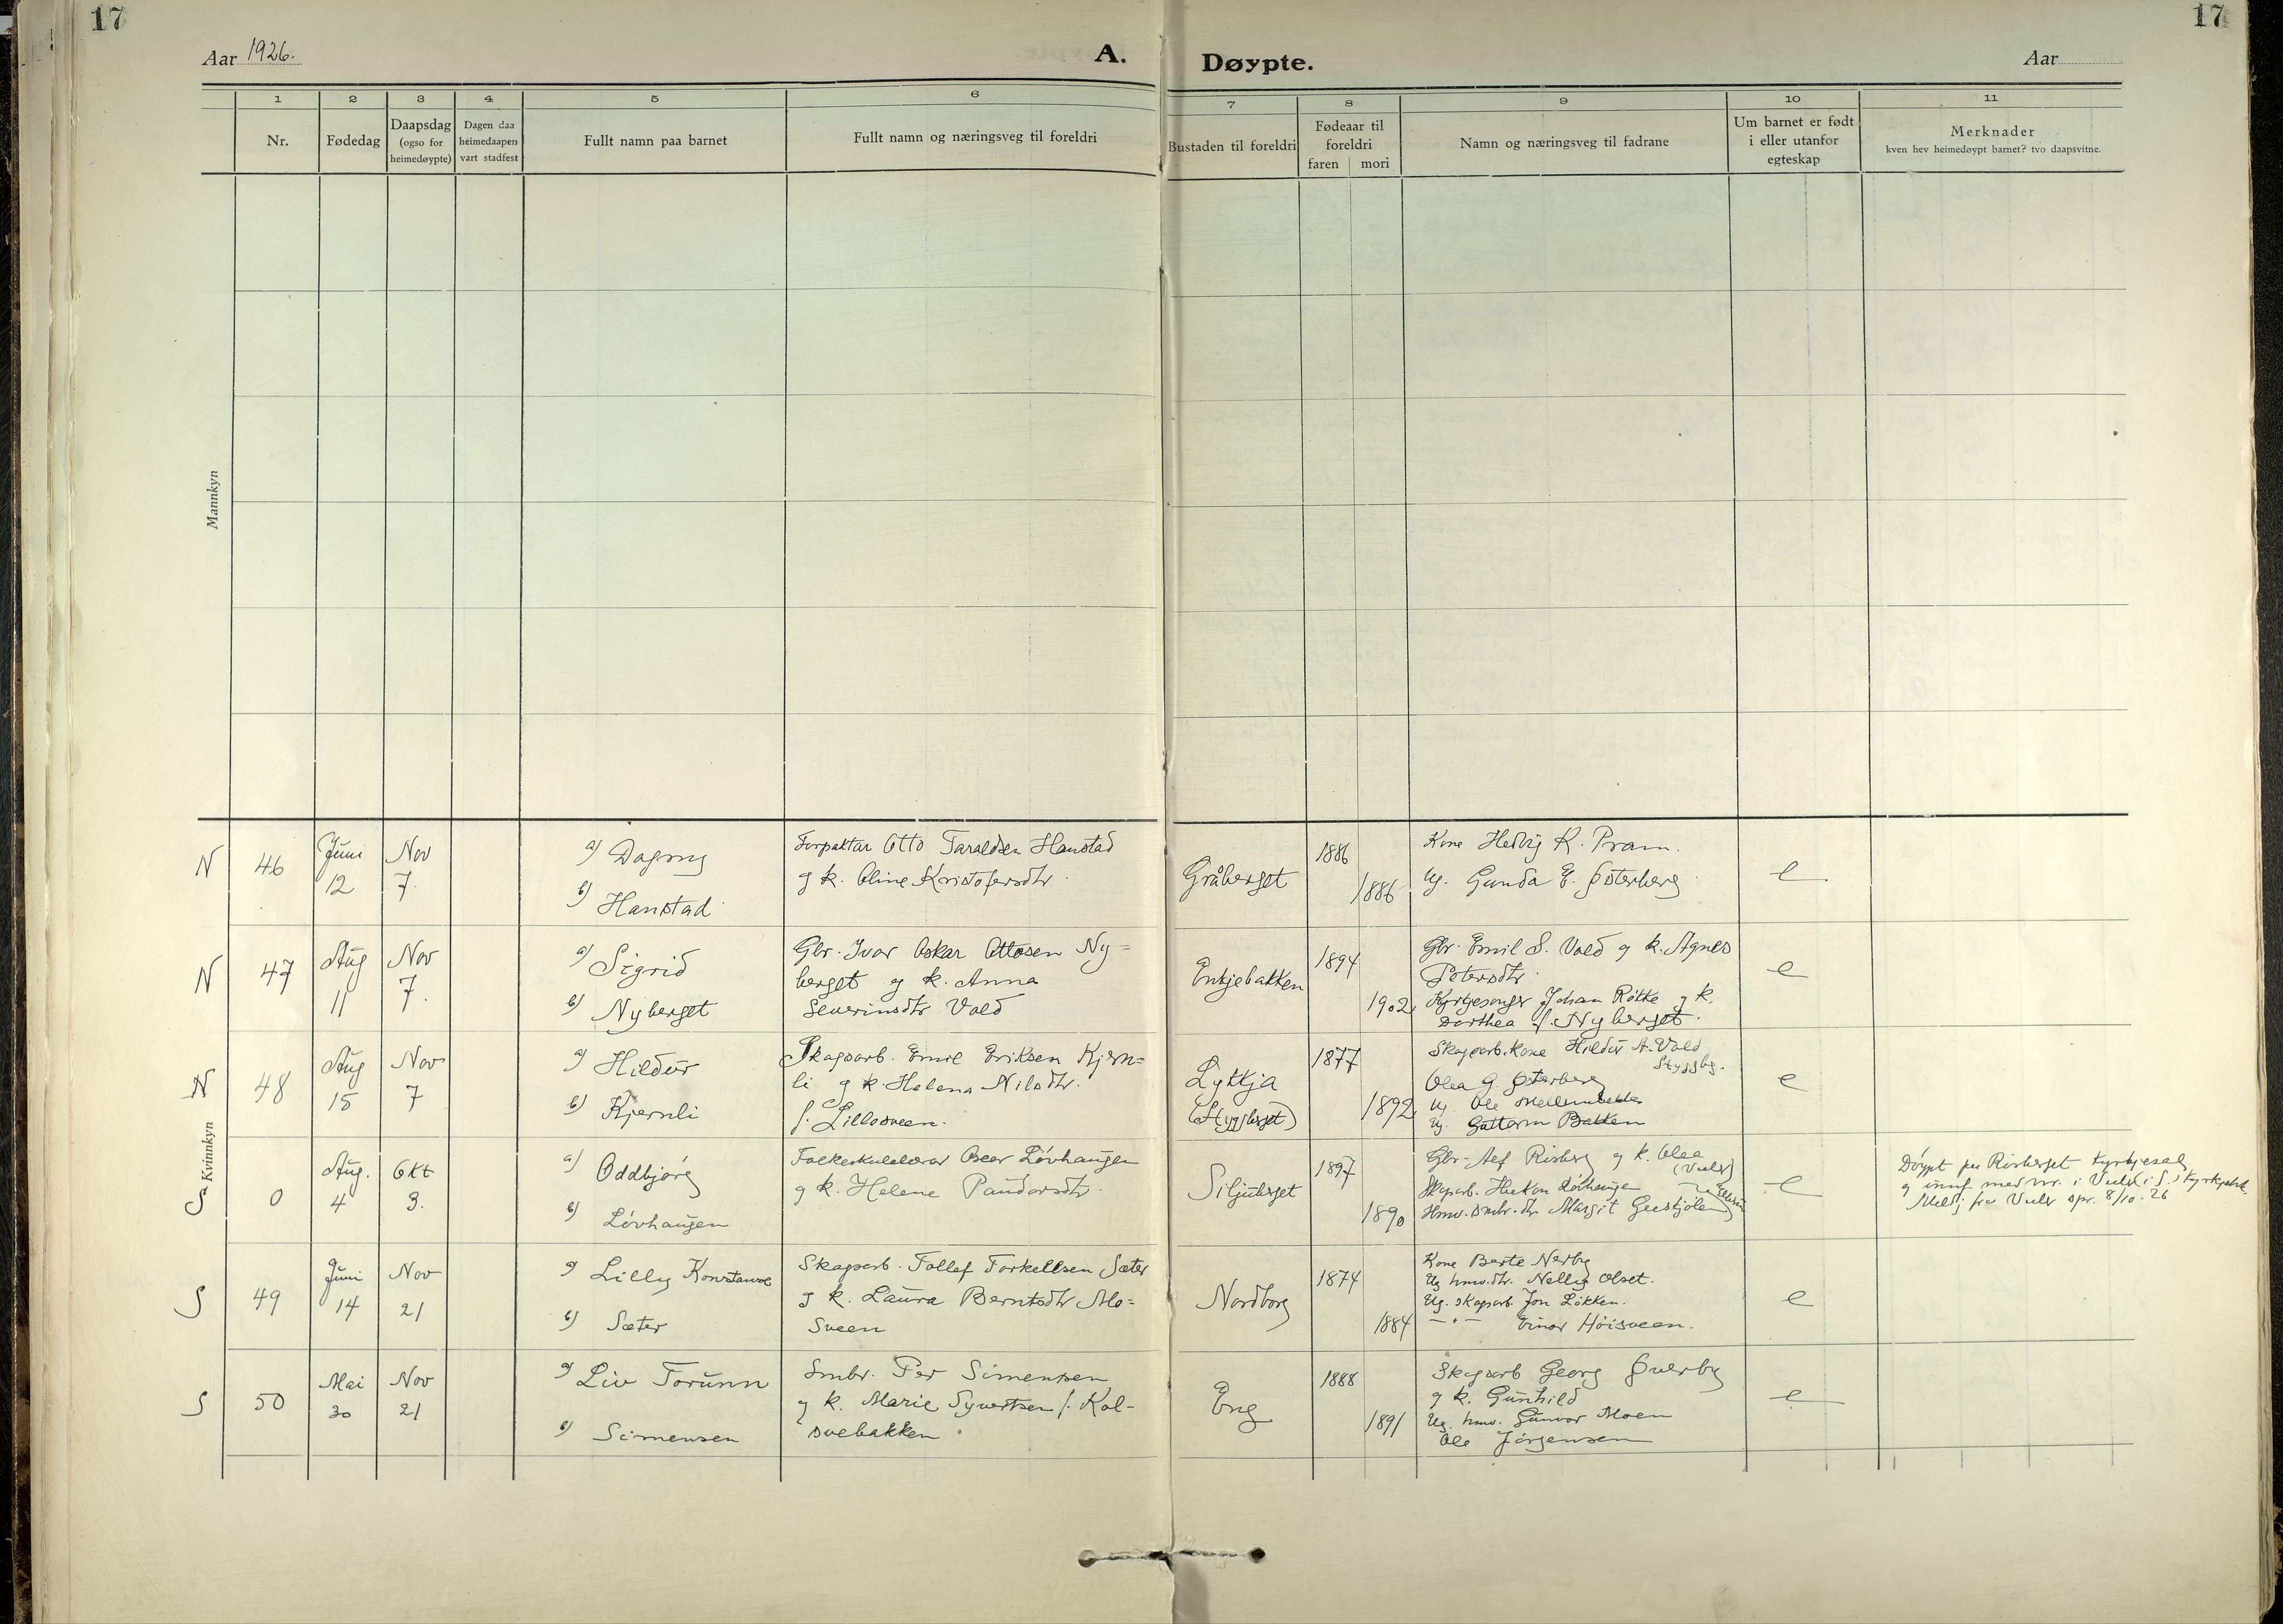 17
17
Aar 1926.
A. Døypte.
Aar
1 2 3 4 5 6 7 8 9 10 11
Nr.
Fødedag
Daapsdag
(ogso for
heimedøypte)
Dagen daa
heimedaapen
vart stadfest
Fullt namn paa barnet
Fullt namn og næringsveg til foreldri
Bustaden til foreldri
Fødeaar til
foreldri
faren mori
Namn og næringsveg til fadrane
Um barnet er født
i eller utanfor
egteskap
Merknader
kven hev heimedøypt barnet? tvo daapsvitne.
Mannkyn
Kvinnkyn
N 46
Juni
12
Nov
7.
a) Dagny
b) Hanstad
Forpaktar Otto Taraldsen Hanstad
g k. Oline Kristofersdtr.
Gråberget
1886
1886
Kone Hedvig K. Pram.
Ug. Gunda E. Østerberg
e
N 47
Aug
11
Nov
7.
a) Sigrid
b) Nyberget
Gbr. Ivar Oskar Ottosen Ny=
berget g k. Anna
Severinsdtr Vold
Enkjebakken
1894
1902
Gbr. Emil S. Vold g k. Agnes
Petersdtr
Kyrkjesongr Johan Røtke g k.
Dorthea f. Nyberget.
e
N 48
Aug
15
Nov
7
a) Hildur
b) Kjernli
Skogsarb. Emil Eriksen Kjern=
li g k. Helena Nilsdtr.
f. Lillosveen.
Lykkja
(Styggberget)
1877
1892
Skogsarb. kone Hildur A. Vold
Styggbg.
Olea G. Østerberg
Ug. Ole
Ug. Guttorm Bakken
e
S 0
Aug.
4
Okt
3.
a) Oddbjørg
b) Løvhaugen
Folkeskulelærar Oscar Løvhaugen
g k. Helene Paudersdtr.
Siljuberget
1897
1890
Gbr. Alf Risberg g k. Olea
(Vuler)
Skogsarb. Haakon Løvhaugen
Hmv. smbr. dtr. Margit
e
Døypt paa Risberget kyrkjesal
g innf med nr. i Vuler i S.
Meld. fraa Vuler spr. 8/10-26
S 49
Juni
14
Nov
21
a) Lilly Konstanse
b) Sæter
Skogsarb. Tollef Torkellsen Sæter
g k. Laura Berntsdtr Mo=
sveen
Nordborg
1874
1884
Kone Berte Nerby
Ug hmv.dtr. Nelly Olset.
Ug. skogsarb. Jon Løkken.
— " — Einar Høisveen.
e
S 50
Mai
30
Nov
21
a) Liv Torunn
b) Simensen
Smbr. Per Simensen
g k. Marie Syvertsen f. Kol-
svebakken
Eng
1888
1891
Skogsarb Georg Øverby
g k. Gunhild
Ug. hmv. Gunvor Moen
Ole Jørgensen
e